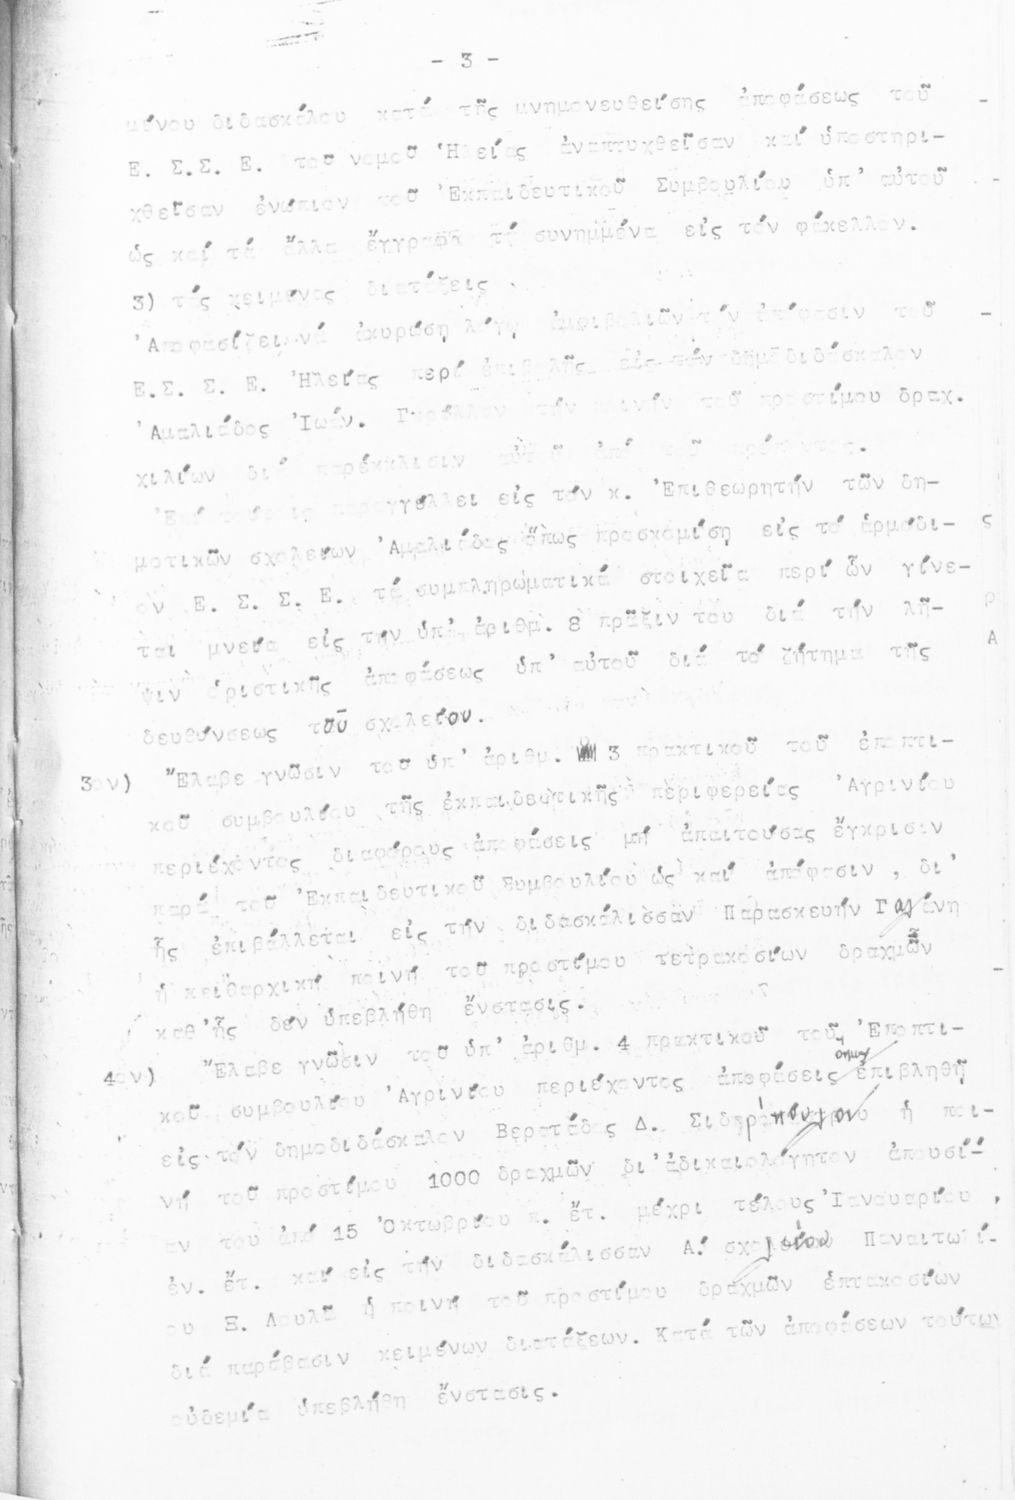 - 3 -
μένου διδασκάλου κατά τῆς μνημονευθείσης ἀποφάσεως τοῦ
Ε. Σ.Σ. Ε. τοῦ νομοῦ Ἠλείας ἀναπτυχθεῖσαν καί ὑποστηρι-
χθεῖσαν ἐνώπιον τοῦ Ἐκπαιδευτικοῦ Συμβουλίου ὑπ' αὐτοῦ
ὡς καί τά ἄλλα ἔγγραφα τά συνημμένα εἰς τόν φάκελλον.
3) τάς κειμένας διατάξεις
Ἀποφασίζει νά ἀκυρώση λόγῳ ἀμφιβολιῶν τήν ἀπόφασιν τοῦ
Ε.Σ. Σ. Ε. Ἠλείας περί ἐπιβολῆς εἰς τόν δημοδιδάσκαλον
Ἀμαλιάδος Ἰωάν. τήν ποινήν τοῦ προστίμου δραχ.
χιλίων διά παρέκκλισιν αὐτοῦ ἀπό τοῦ πρέποντος.
παραγγέλλει εἰς τόν κ. Ἐπιθεωρητήν τῶν δη-
μοτικῶν σχολείων Ἀμαλιάδος ὅπως προσκομίση εἰς τό ἁρμόδι-
ον Ε. Σ. Σ. Ε. τά συμπληρωματικά στοιχεῖα περί ὧν γίνε-
ται μνεία εἰς τήν ὑπ' ἀριθμ. 8 πρᾶξιν του διά τήν λῆ-
ψιν ὁριστικῆς ἀποφάσεως ὑπ' αὐτοῦ διά τό ζήτημα τῆς
δευθύνσεως τοῦ σχολείου.
3ον) Ἔλαβε γνῶσιν τοῦ ὑπ' ἀριθμ. 3 πρακτικοῦ τοῦ ἐποπτι-
κοῦ συμβουλίου τῆς ἐκπαιδευτικῆς περιφερείας Ἀγρινίου
περιέχοντος διαφόρους ἀποφάσεις μή ἀπαιτούσας ἔγκρισιν
παρά τοῦ Ἐκπαιδευτικοῦ Συμβουλίου ὡς καί ἀπόφασιν, δι'
ἧς ἐπιβάλλεται εἰς τήν διδασκάλισσαν Παρασκευήν Γαλάνη
ἡ πειθαρχική ποινή τοῦ προστίμου τετρακοσίων δραχμῶν
καθ' ἧς δέν ὑπεβλήθη ἔνστασις.
4ον) Ἔλαβε γνῶσιν τοῦ ὑπ' ἀριθμ. 4 πρακτικοῦ τοῦ Ἐποπτι-
κοῦ συμβουλίου Ἀγρινίου περιέχοντος ἀποφάσεις ἐπιβληθῆ
εἰς τόν δημοδιδάσκαλον Βερστάδος Δ. ἡ ποι-
νή τοῦ προστίμου 1000 δραχμῶν δι' ἀδικαιολόγητον ἀπουσί-
αν του ἀπό 15 Ὀκτωβρίου π. ἔτ. μέχρι τέλους Ἰανουαρίου ,
ἐν. ἔτ. καί εἰς τήν διδασκάλισσαν Α. σχολείου Παναιτωλί-
ου Ξ. Λουλᾶ ἡ ποινή τοῦ προστίμου δραχμῶν ἑπτακοσίων
διά παράβασιν κειμένων διατάξεων. Κατά τῶν ἀποφάσεων τούτων
οὐδεμία ὑπεβλήθη ἔνστασις.